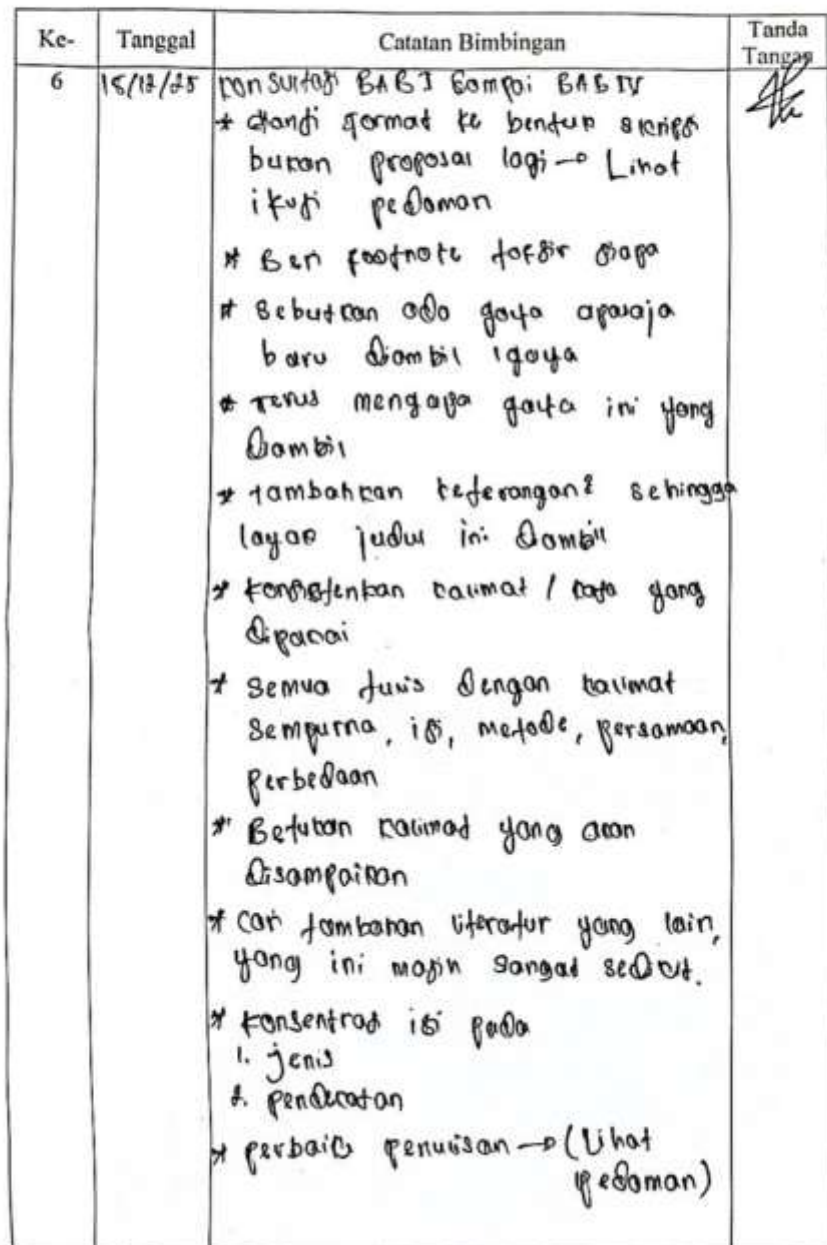 Ke- Tanggal Catatan Bimbingan Tanda Tangan
6 15/12/25 Konsultasi BAB I Sampai BAB IV
* Ganti format ke bentuk skripsi
bukan proposal lagi → Lihat
ikuti pedoman
* Beri footnote tafsir siapa
* Sebutkan ada gaya apasaja
baru diambil 1 gaya
* Terus mengapa gaya ini yang
diambil
* Tambahkan keterangan² sehingga
layak judul ini diambil
* Konsistenkan kalimat / kata yang
dipakai
* Semua tulis dengan kalimat
sempurna, isi, metode, persamaan,
perbedaan
* Betulkan kalimat yang akan
disampaikan
* Cari tambahan literatur yang lain,
yang ini masih sangat sedikit.
* Konsentrasi isi pada
1. jenis
2. pendekatan
* perbaiki penulisan → (Lihat
pedoman)